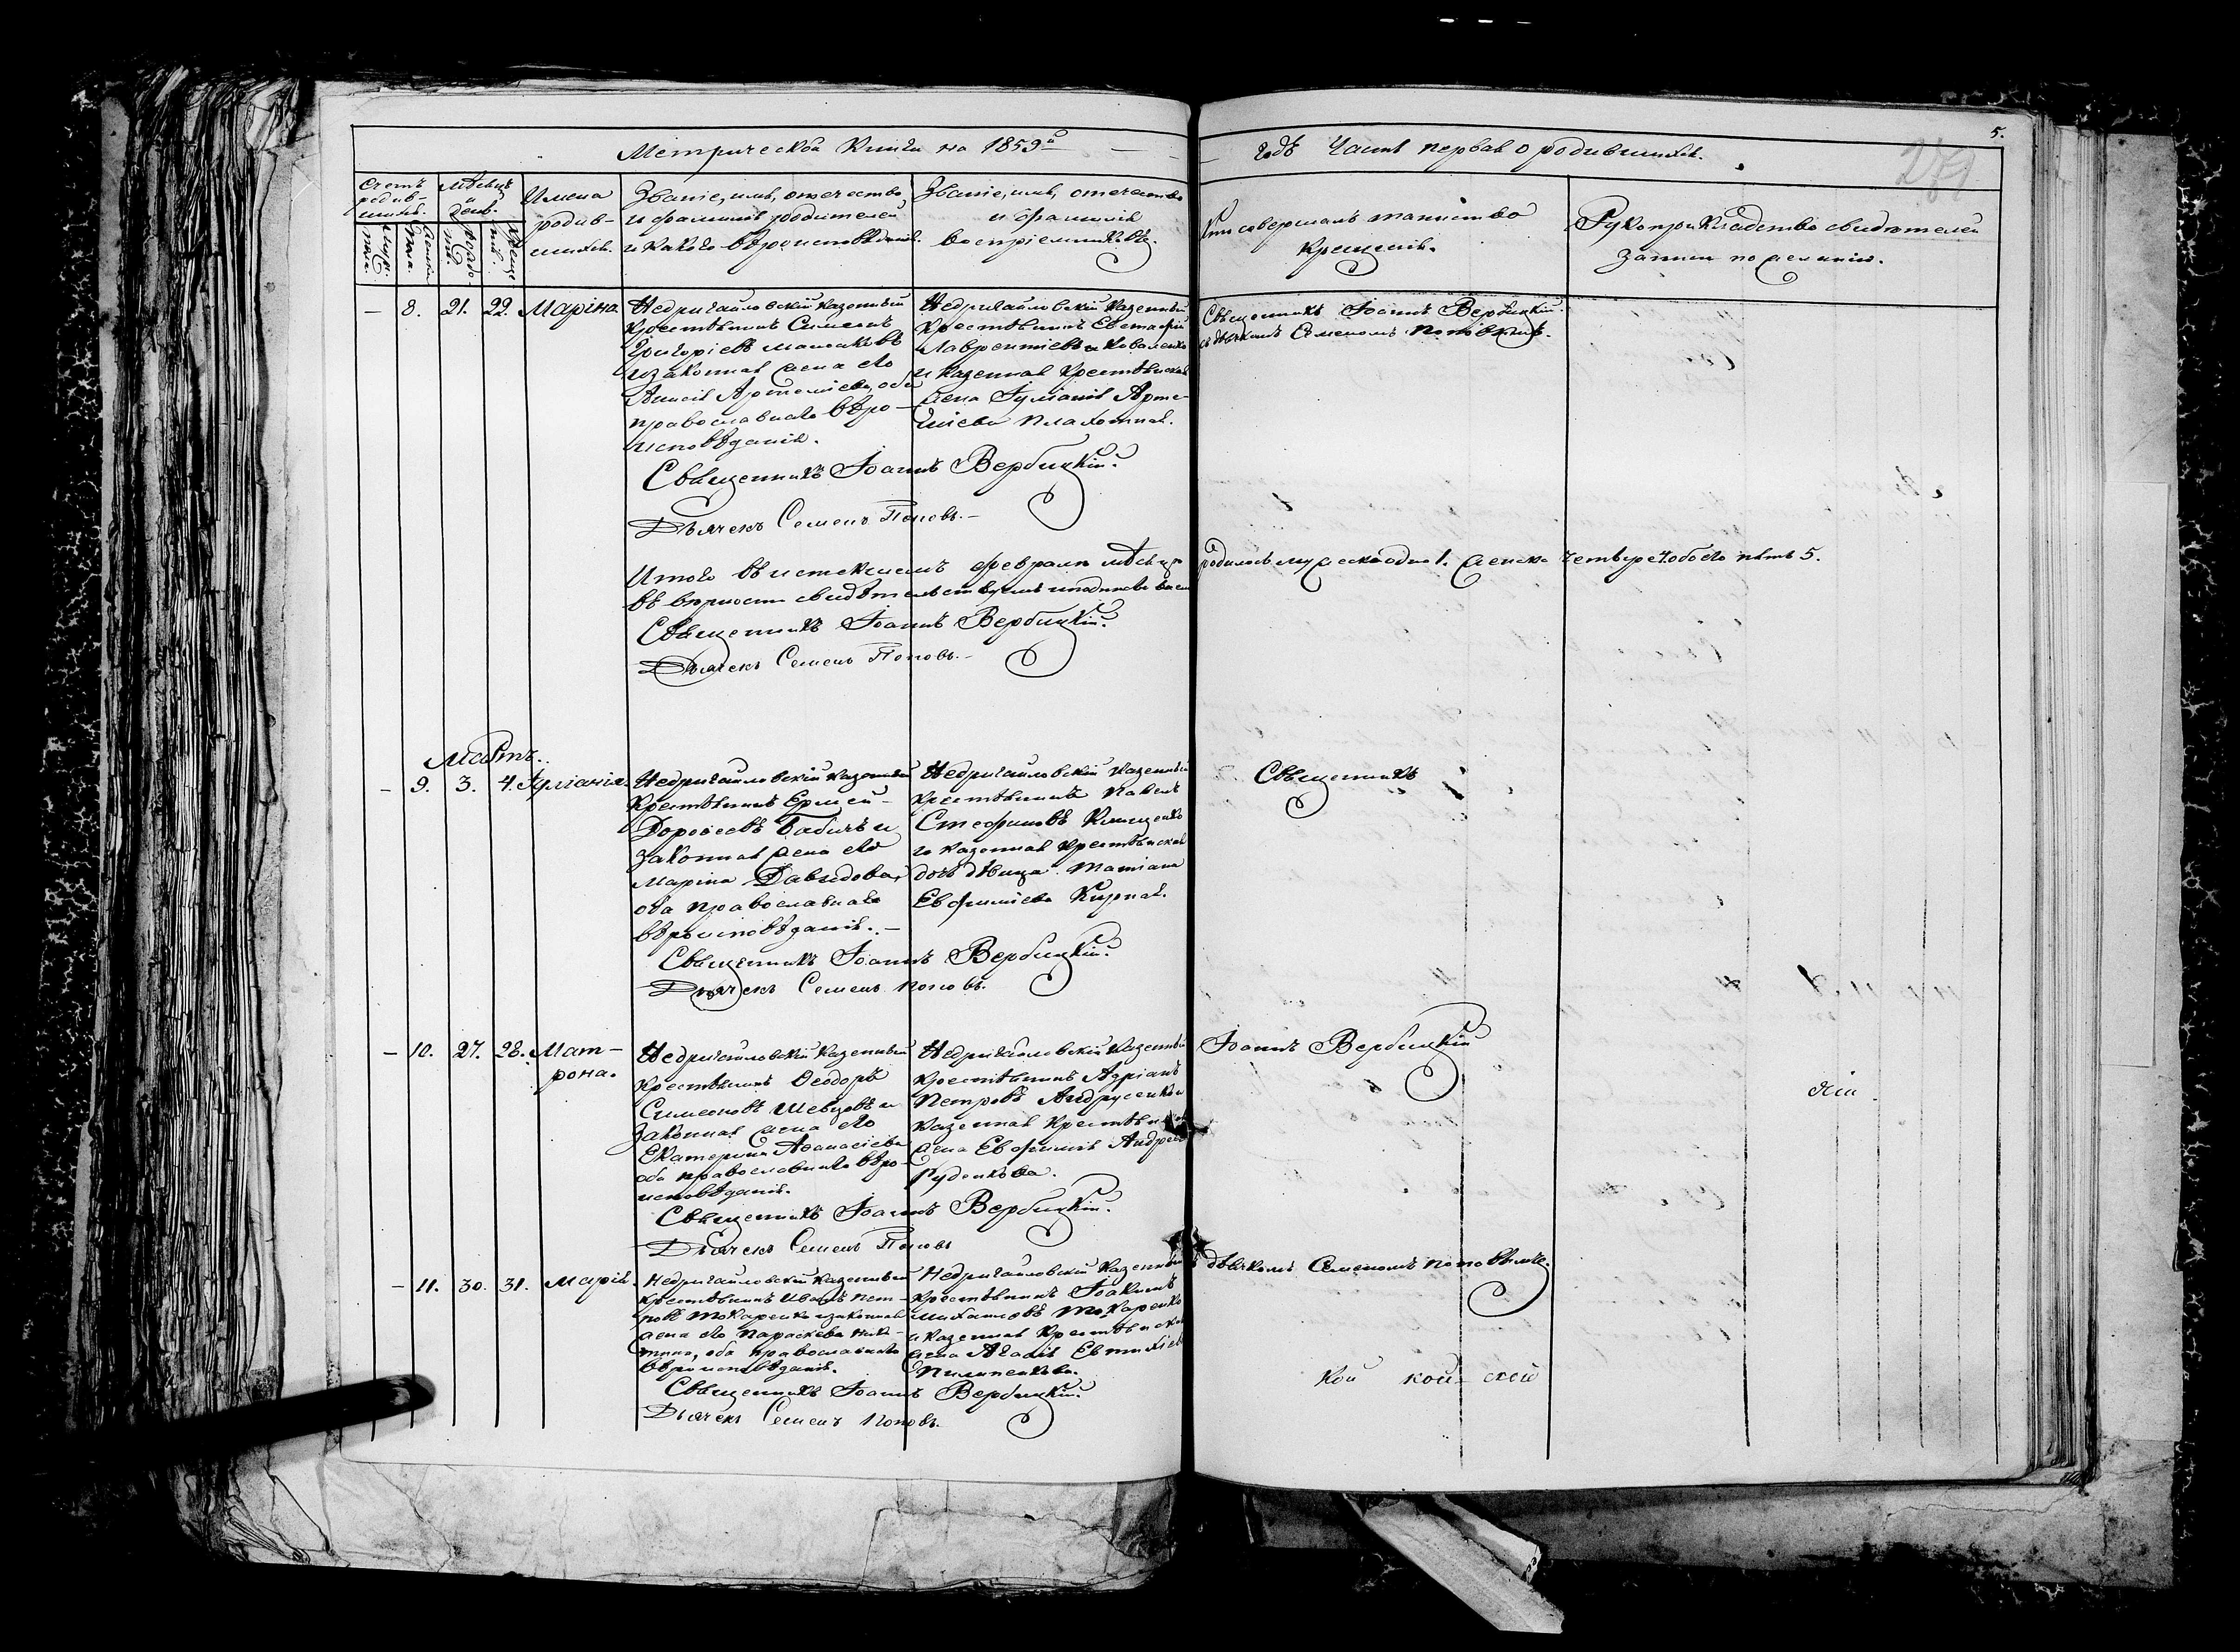 5.
Метрической Книги на 1859й
годъ Часть первая о родившихся.
Счетъ родив-шихся.
Мѣсяцъ и день.
Имена родив-шихся.
Званіе, имя, отечество
и фамилія родителей
и какого вѣроисповѣданія.
Званіе, имя, отечество
и фамилія
воспріемниковъ.
Кто совершалъ таинство
крещенія.
Рукоприкладство свидѣтелей
записи по желанію.
Муже-ска.
Женска.
Рожде-нія.
Креще-нія.
— 8. 21. 22. Маріна
Недригайловскій казенный
крестьянинъ Симеонъ
Григоріевъ
и законная жена его
Анисія Артеміева, оба
православнаго вѣро-
исповѣданія.
Недригайловскій казенный
крестьянинъ Евстафій
Лаврентіевъ Коваленко
и казенная крестьянская
жена Іуліанія Арте-
міева Плахотная.
Священникъ Іоаннъ Вербицкій
съ дьячкомъ Семеномъ Поповымъ.
Священникъ Іоаннъ Вербицкій.
Дьячекъ Семенъ Поповъ.—
Итого въ истекшемъ февралѣ мѣсяцѣ родилось мужеска одно 1. женска четыре 4. обоего пять 5.
въ вѣрности свидѣтельствуемъ
Священникъ Іоаннъ Вербицкій.
Дьячекъ Семенъ Поповъ.—
Мартъ.
— 9. 3. 4. Іуліанія.
Недригайловскій казенный
крестьянинъ Ермей
Дорофеевъ Бабичъ и
законная жена его
Маріна Давыдова,
оба православнаго
вѣроисповѣданія.—
Недригайловскій казенный
крестьянинъ Павелъ
Стефановъ Клищенко
и казенная крестьянская
дочь дѣвица Татіана
Евфиміева Курная.
Священникъ
Священникъ Іоаннъ Вербицкій.
Дьячекъ Семенъ Поповъ.
— 10. 27. 28. Мат-
рона.
Недригайловскій казенный
крестьянинъ Ѳеодоръ
Симеоновъ Шевцовъ и
законная жена его
Екатерина Аѳанасіева
оба православнаго вѣро-
исповѣданія.
Недригайловскій казенный
крестьянинъ Адріанъ
Петровъ Андрусенко и
казенная крестьянская
жена Евфимія Андреева
Руденкова.
Іоаннъ Вербицкій
Священникъ Іоаннъ Вербицкій.
Дьячекъ Семенъ Поповъ
— 11. 30. 31. Марія.
Недригайловскій казенный
крестьянинъ Иванъ Пет-
ровъ Токаренко и законная
жена его Параскева Ники-
тина, оба православнаго
вѣроисповѣданія.
Недригайловскій казенный
крестьянинъ Іоакимъ
Михайловъ Токаренко
и казенная крестьянская
жена Агафія Евтихіева
Пилипенкова.
дьячкомъ Семеномъ Поповымъ.
Священникъ Іоаннъ Вербицкій.
Дьячекъ Семенъ Поповъ.
кой кой ской